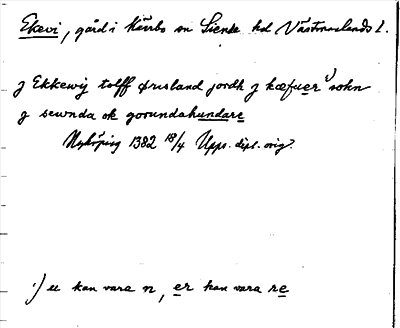 Ekevi, gård i Kärrbo sn Siende hd Västmanlands l.
J Ekkewij tolff øresland jordh J kæfuer 1) sokn
J sewnda ok gorundahundare
Nyköping 1382 18/4 Upps. dipl. orig.
1) u kan vara n, er kan vara re